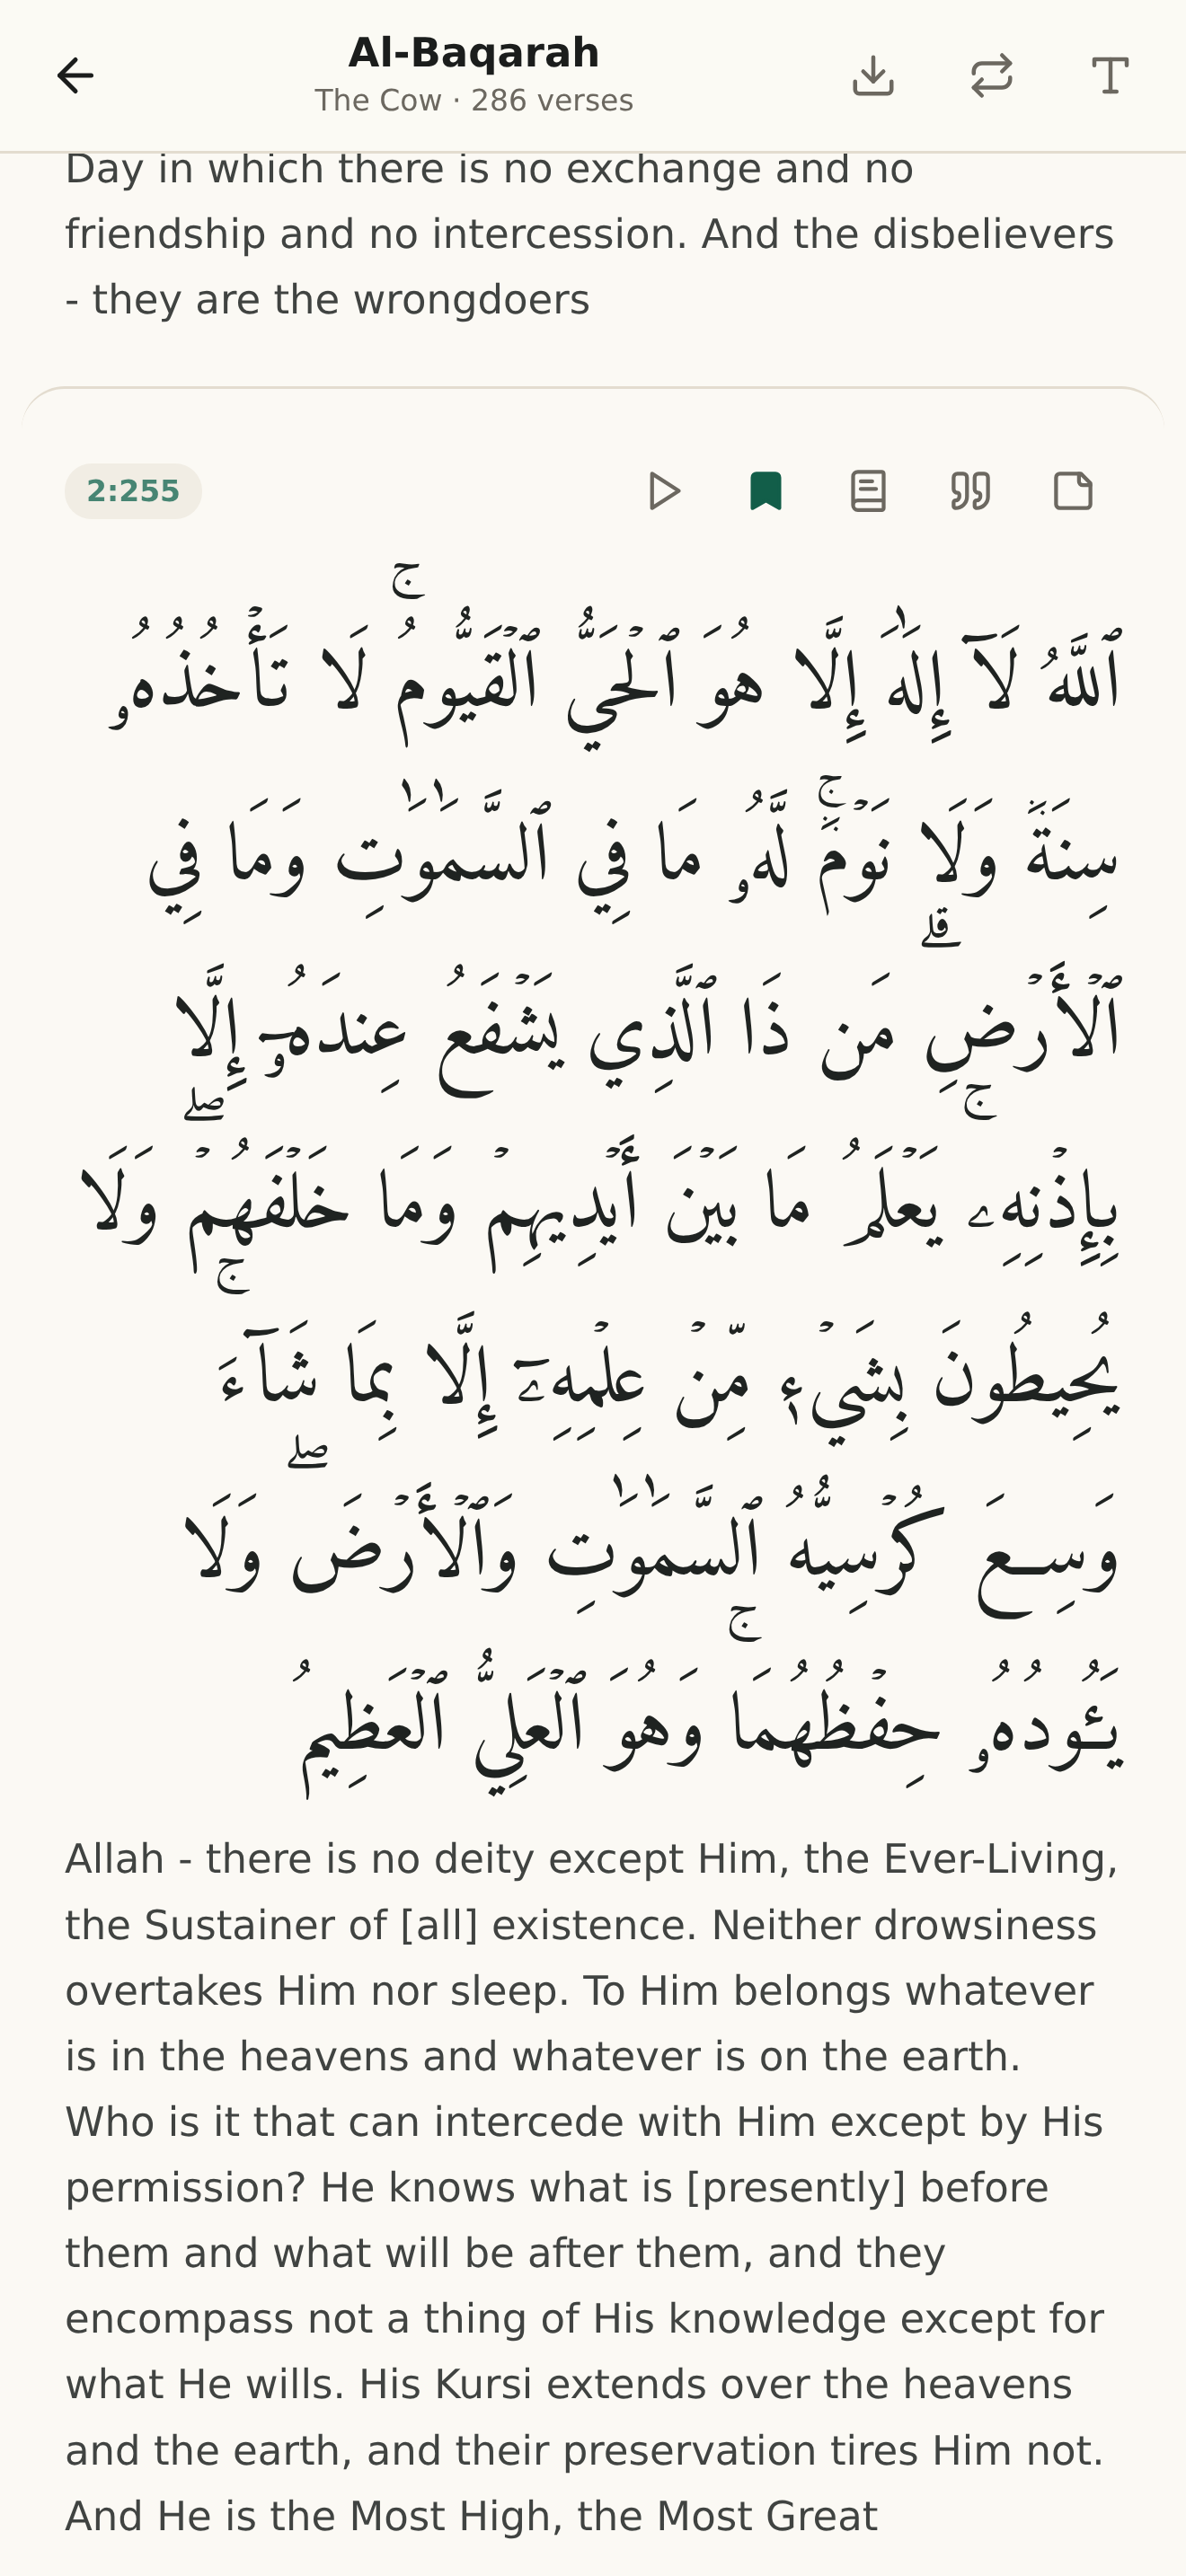 Al-Baqarah
The Cow · 286 verses
Day in which there is no exchange and no
friendship and no intercession. And the disbelievers
- they are the wrongdoers
2:255
ٱللَّهُ لَآ إِلَٰهَ إِلَّا هُوَ ٱلۡحَيُّ ٱلۡقَيُّومُۚ لَا تَأۡخُذُهُۥ
سِنَةٞ وَلَا نَوۡمٞۚ لَّهُۥ مَا فِي ٱلسَّمَٰوَٰتِ وَمَا فِي
ٱلۡأَرۡضِۗ مَن ذَا ٱلَّذِي يَشۡفَعُ عِندَهُۥٓ إِلَّا
بِإِذۡنِهِۦۚ يَعۡلَمُ مَا بَيۡنَ أَيۡدِيهِمۡ وَمَا خَلۡفَهُمۡۖ وَلَا
يُحِيطُونَ بِشَيۡءٖ مِّنۡ عِلۡمِهِۦٓ إِلَّا بِمَا شَآءَۚ
وَسِعَ كُرۡسِيُّهُ ٱلسَّمَٰوَٰتِ وَٱلۡأَرۡضَۖ وَلَا
يَـُٔودُهُۥ حِفۡظُهُمَاۚ وَهُوَ ٱلۡعَلِيُّ ٱلۡعَظِيمُ
Allah - there is no deity except Him, the Ever-Living,
the Sustainer of [all] existence. Neither drowsiness
overtakes Him nor sleep. To Him belongs whatever
is in the heavens and whatever is on the earth.
Who is it that can intercede with Him except by His
permission? He knows what is [presently] before
them and what will be after them, and they
encompass not a thing of His knowledge except for
what He wills. His Kursi extends over the heavens
and the earth, and their preservation tires Him not.
And He is the Most High, the Most Great